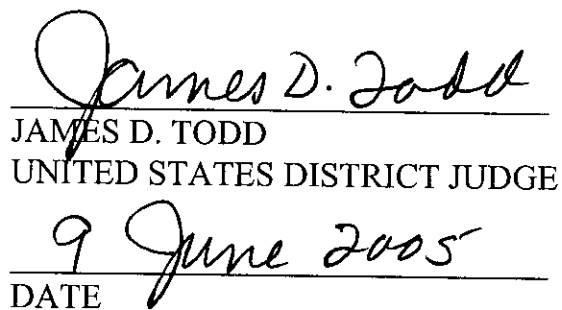 James D. Todd
JAMES D. TODD
UNITED STATES DISTRICT JUDGE
9 June 2005
DATE